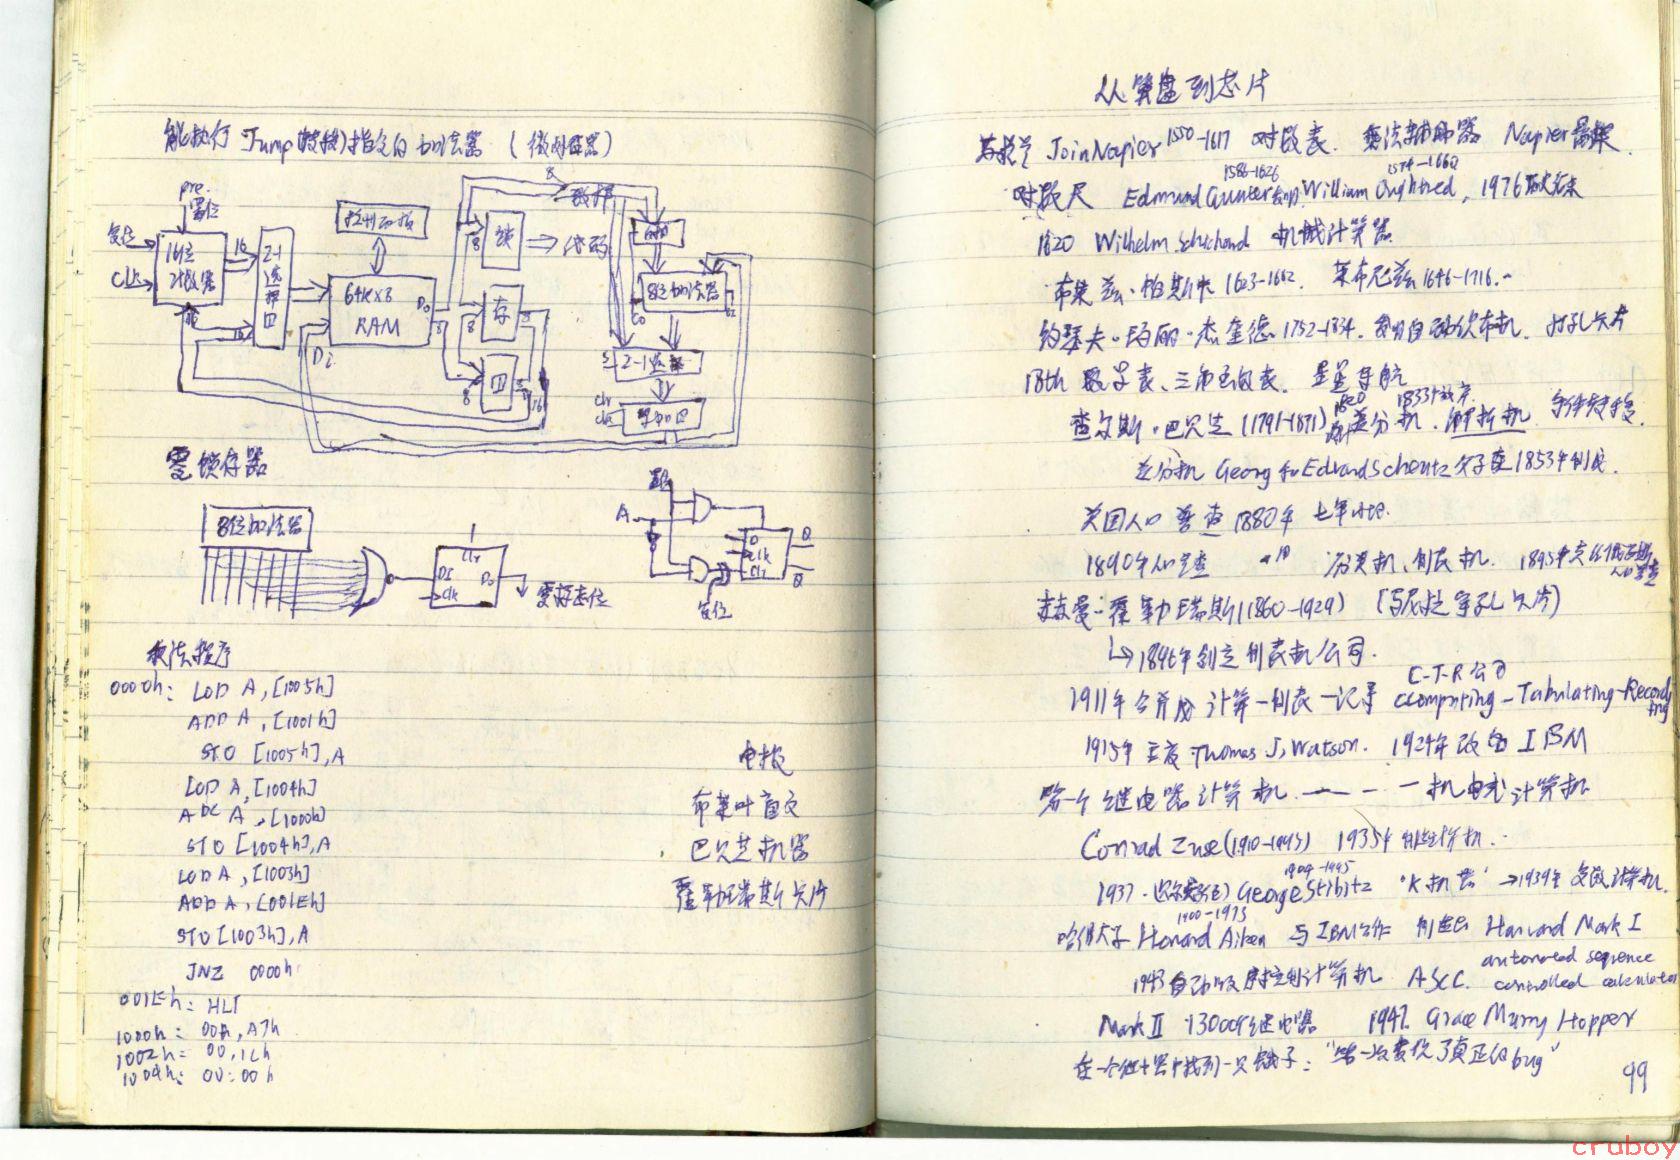 能执行 Jump(转换)指令的加法器 (微处理器)
pre.
置位
复位
CLK
16位
计数器
16
2-1
选择
控制面板
64K×8
RAM
Do
Di
8
8
8
8
8
8
16
16
锁
存
四
代码
数据
8位加法器
Co
S
2-1选择
clr
clk
零锁存器
8位加法器
DI
Clk
Clr
Do
零标志位
A
D
Clk
Clr
Q
Q
复位
乘法程序
0000h: LOD A,[1005h]
ADD A,[1001h]
STO [1005h],A
LOD A,[1004h]
ADC A,[1000h]
STO [1004h],A
LOD A,[1003h]
ADD A,[001Eh]
STO [1003h],A
JNZ 0000h
001Eh: HLT
1000h: 00h, A7h
1002h: 00, 1Ch
1004h: 00: 00h
电报
布莱叶盲文
巴贝芝机器
霍勒瑞斯卡片
从算盘到芯片
苏格兰 Join Napier 1550-1617 对数表. 乘法辅助器 Napier骨架.
1586-1626 1574-1660
对数尺 Edmund Gunter William Oughtred, 1976
1620 Wilhelm Schichard 机械计算器.
布莱兹·帕斯卡 1623-1662. 莱布尼兹 1646-1716.
约瑟夫·玛丽·杰奎德 1752-1834. 自动织布机. 打孔卡片
18th 数学表、三角函数表. 星星导航
1820 1833年放弃
查尔斯·巴贝芝 (1791-1871) 差分机. 解析机.
差分机 Georg Edvard Scheutz 父子 1853年制成.
美国人口普查 1880年 七年
1890年人口普查 制表机. 1895年
赫曼·霍勒瑞斯(1860-1929) (马尼拉穿孔卡片)
↳1896年创立制表机公司.
C-T-R公司
1911年合并成 计算-制表-记录 Computing-Tabulating-Recording
1915年 Thomas J, Watson. 1924年改名 IBM
第一个继电器计算机. — - - 机电式计算机
Conrad Zuse(1910-1995) 1935年制造
1904-1995
1937. George Stibitz "K机器" →1939年 复数计算机.
1900-1973
哈佛大学 Howard Aiken 与IBM合作 制造出 Harvard Mark I
automated sequence
1943 自动顺序控制计算机 ASCC. controlled calculator
Mark II 13000个继电器 1947. Grace Murry Hopper
在一个继电器中找到一只蛾子: "第一次发现了真正的bug"
99
cruboy